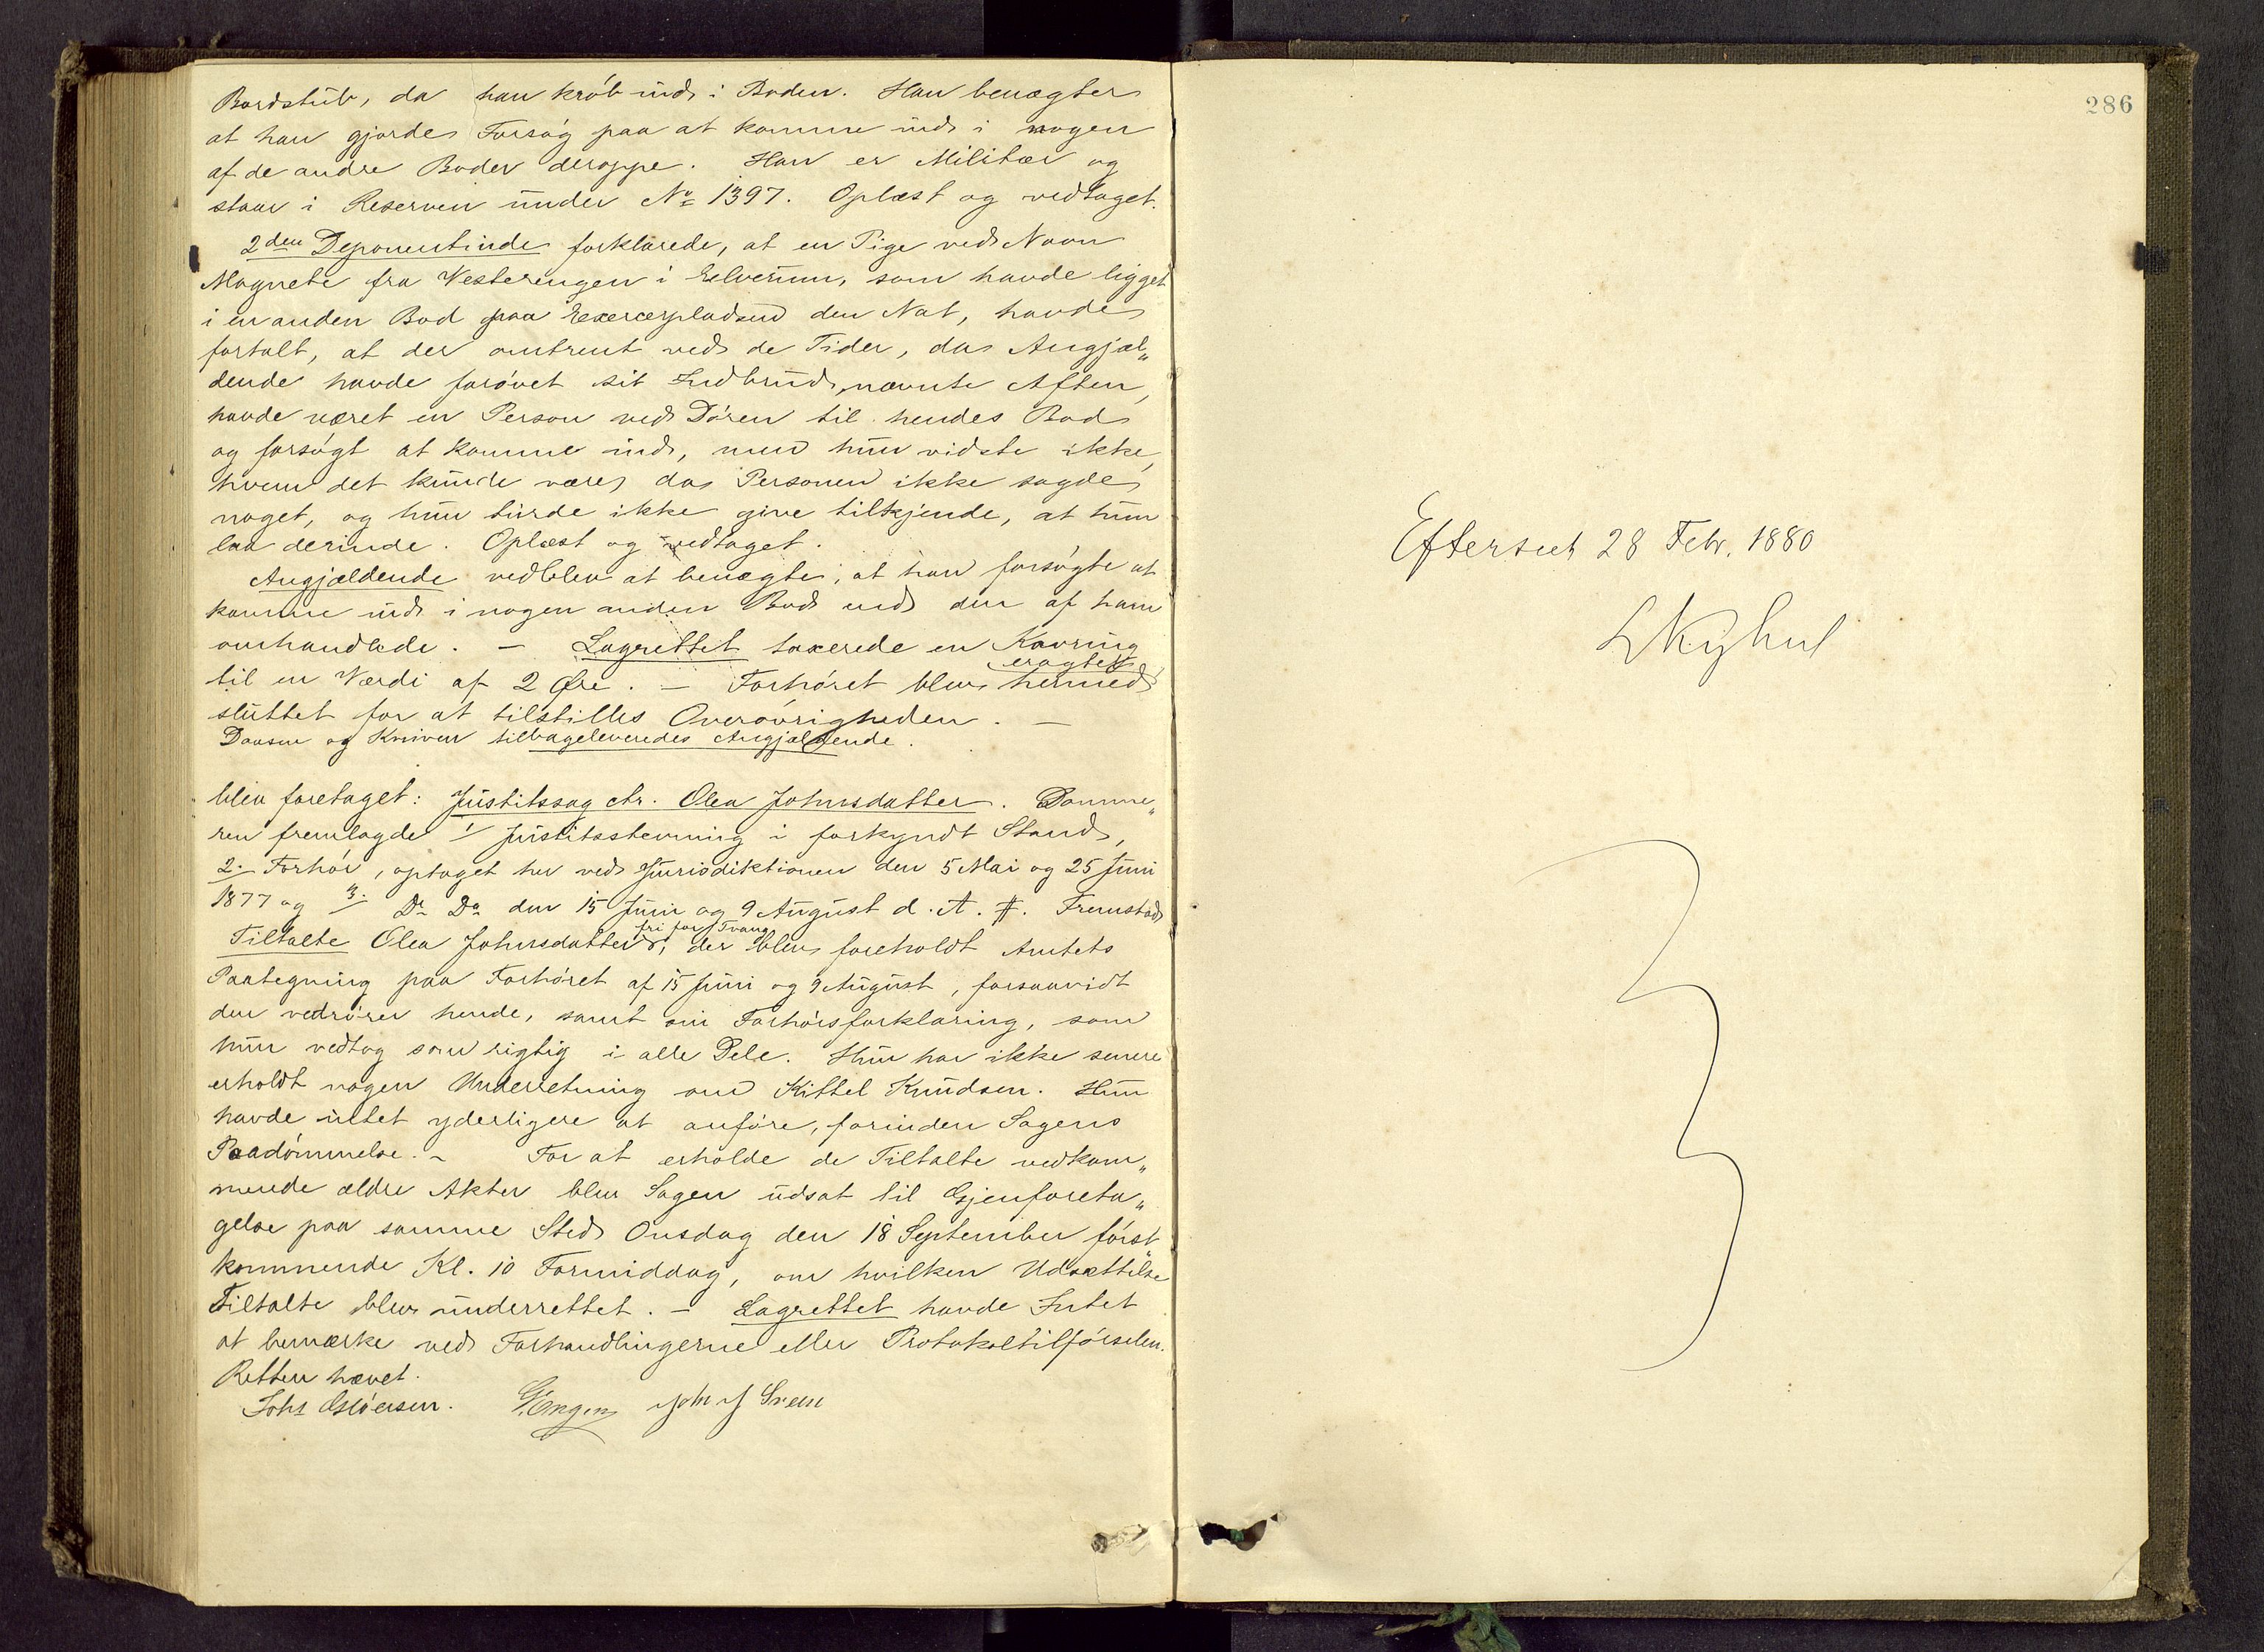 Bordstub, da han kröb ind i Boden. Han benægter
at han gjorde Forsög paa at komme ind i nogen
af de andre Boder deroppe. Han er Militær og
staar i Reserven under No 1397. Oplæst og vedtaget.
2den Deponentinde forklarede, at en Pige ved Navn
Magnete fra Vesterengen i Elverum, som havde ligget
i en anden Bod paa Exercerpladsen den Nat, havde
fortalt, at der omtrent ved de Tider, da Angjæl„
dende havde forövet sit Indbrud nævnte Aften,
havde været en Person ved Dören til hendes Bod
og forsögt at komme ind, men hun vidste ikke,
hvem det kunde være, da Personen ikke sagde
noget, og hun turde ikke give tilkjende, at hun
laa derinde. Oplæst og vedtaget.
Angjældende vedblev at benægte, at han forsögte at
komme ind i nogen anden Bod end den af ham
omhandlede. — Lagrettet taxerede en Kavring
til en Værdi af 2 Øre. — Forhöret blev eragtet hermed
sluttet for at tilstilles Overövrigheden. —
Daasen og Kniven tilbageleveredes Angjældende.
blev foretaget: Justitssag ctr. Olea Johnsdatter. Domme„
ren fremlagde 1/ Justitsstevning i forkyndt Stand,
2. Forhör, optaget her ved Jurisdiktionen den 5 Mai og 25 Juni
1877 og 3. Do Do den 15 Juni og 9 August d. A. #. Fremstod
Tiltalte Olea Johnsdatter fri for Tvang, der blev foreholdt Amtets
Paategning paa Forhöret af 15 Juni og 9 August, forsaavidt
den vedrörer hende, samt sin Forhörsforklaring, som
hun vedtog som rigtig i alle Dele. Hun har ikke senere
erholdt nogen Underretning om Kittel Knudsen. Hun
havde intet yderligere at anföre, forinden Sagens
Paadömmelse. — For at erholde de Tiltalte vedkom„
mende ældre Akter blev Sagen udsat til Gjenforeta„
gelse paa samme Sted Onsdag den 18 September först„
kommende Kl. 10 Formiddag, om hvilken Udsættelse
Tiltalte blev underrettet. — Lagrettet havde Intet
at bemærke ved Forhandlingerne eller Protokoltilförselen.
Retten hævet.
G. Engen John J Grem
286
Efterseet 28 Febr. 1880